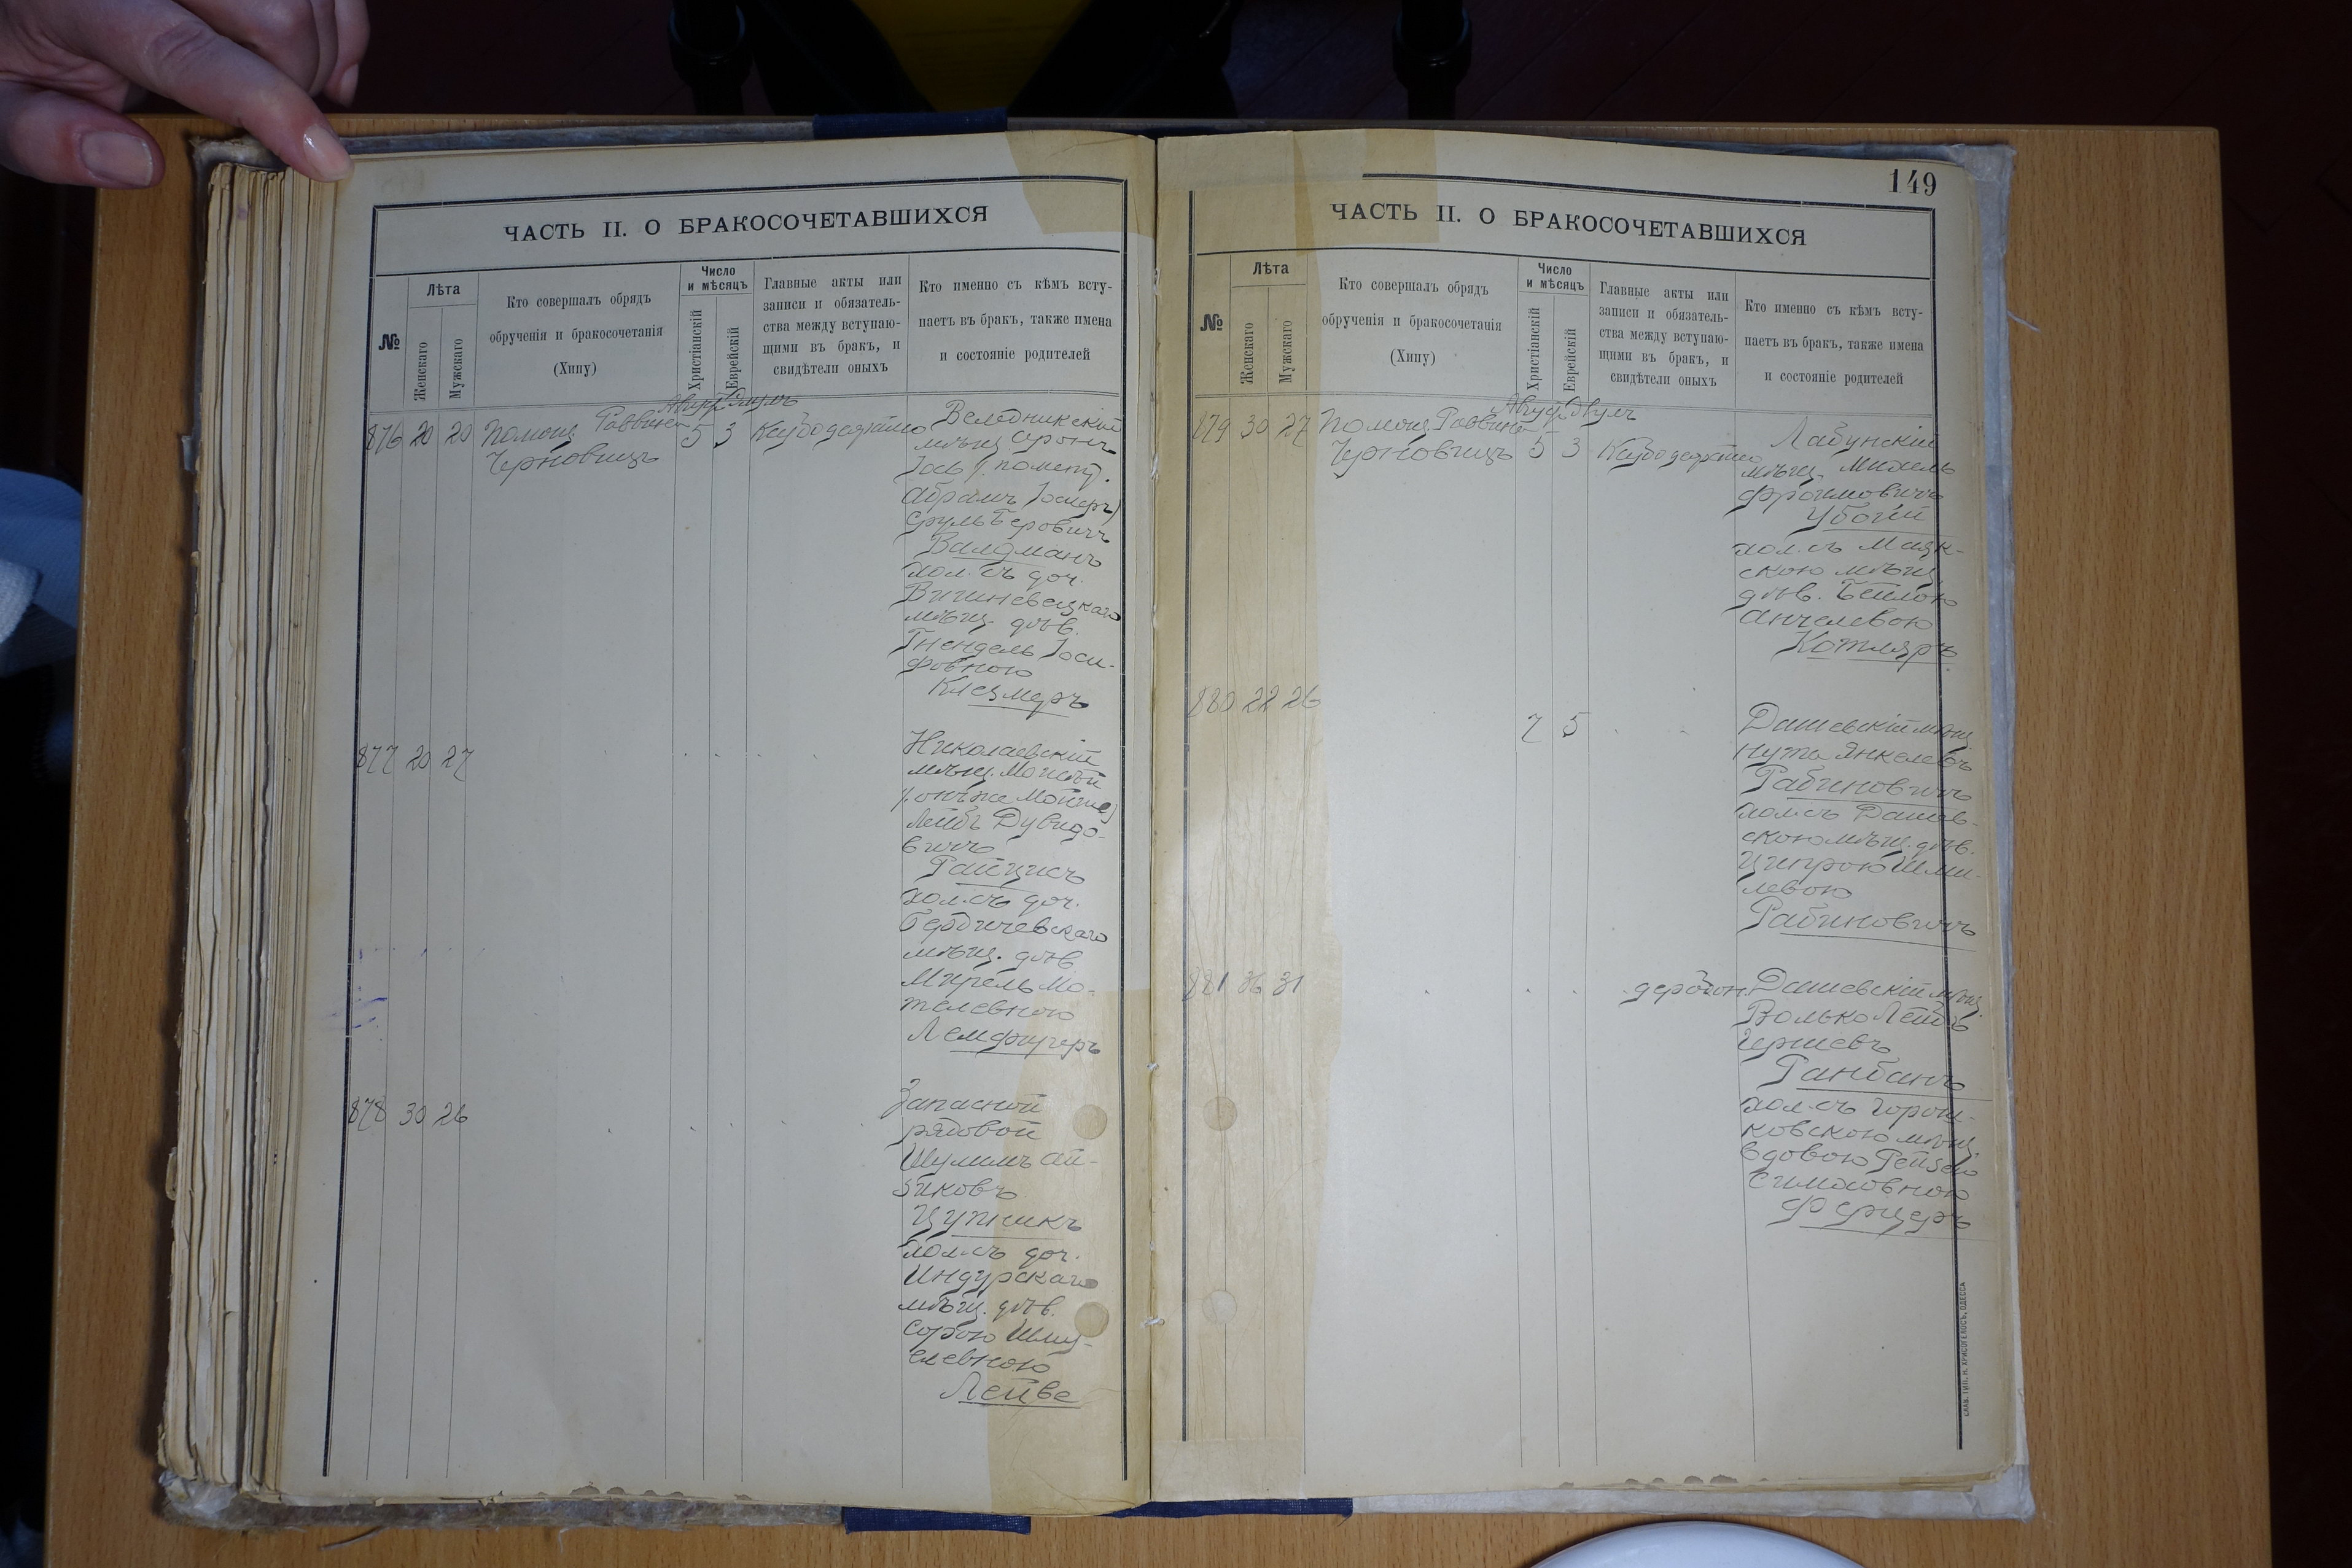 ЧАСТЬ II. О БРАКОСОЧЕТАВШИХСЯ
№
Лѣта
Женскаго
Мужскаго
Кто совершалъ обрядъ
обрученія и бракосочетанія
(Хипу)
Число
и мѣсяцъ
Христіанскій
Еврейскій
Главные акты или
записи и обязатель-
ства между вступаю-
щими въ бракъ, и
свидѣтели оныхъ
Кто именно съ кѣмъ всту-
паетъ въ бракъ, также имена
и состояніе родителей
876 20 20 Помощ. Раввина
Черновицъ
5 3
Веледникскій
мѣщ.
Абрамъ
Сруль Беровичъ
Валдманъ
хол. съ доч.
Вишневецкаго
мѣщ. дѣв.
Гнендель Іоси-
фовною
Клецмеръ
877 20 27
Николаевскій
мѣщ. Моисей
(онъ же Мойше)
Лейбъ Дувидо-
вичъ
Райцисъ
хол. съ доч.
Бердичевскаго
мѣщ. дѣв.
Мирель Мо-
телевною
878 30 26
Запасной
рядовой
Шулимъ Ай-
зиковъ
Цупникъ
хол. съ доч.
Индурскаго
мѣщ. дѣв.
Сорою Шму-
елевною
Лейве
149
ЧАСТЬ II. О БРАКОСОЧЕТАВШИХСЯ
№
Лѣта
Женскаго
Мужскаго
Кто совершалъ обрядъ
обрученія и бракосочетанія
(Хипу)
Число
и мѣсяцъ
Христіанскій
Еврейскій
Главные акты или
записи и обязатель-
ства между вступаю-
щими въ бракъ, и
свидѣтели оныхъ
Кто именно съ кѣмъ всту-
паетъ въ бракъ, также имена
и состояніе родителей
879 30 27 Помощ. Раввина
Черновицъ
5 3
Лабунскій
мѣщ. Михель
Фроимовичъ
Убогій
хол. съ Маяк-
скою мѣщ.
дѣв. Бейлою
Анчелевою
Котляръ
880 22 26
7 5
Дашевскій мѣщ.
Нута Янкелевъ
Рабиновичъ
хол. съ Дашев-
скою мѣщ. дѣв.
Ципрою Шми-
левою
Рабиновичъ
881 36 31
Дашевскій мѣщ.
Волько Лейбъ
Гершевъ
Ганбанъ
хол. съ Горош-
ковскою мѣщ.
вдовою Рейзею
Симоновною
Ферцеръ
СЛАВ. ТИП. Н. ХРИСОГЕЛОСЪ, ОДЕССА